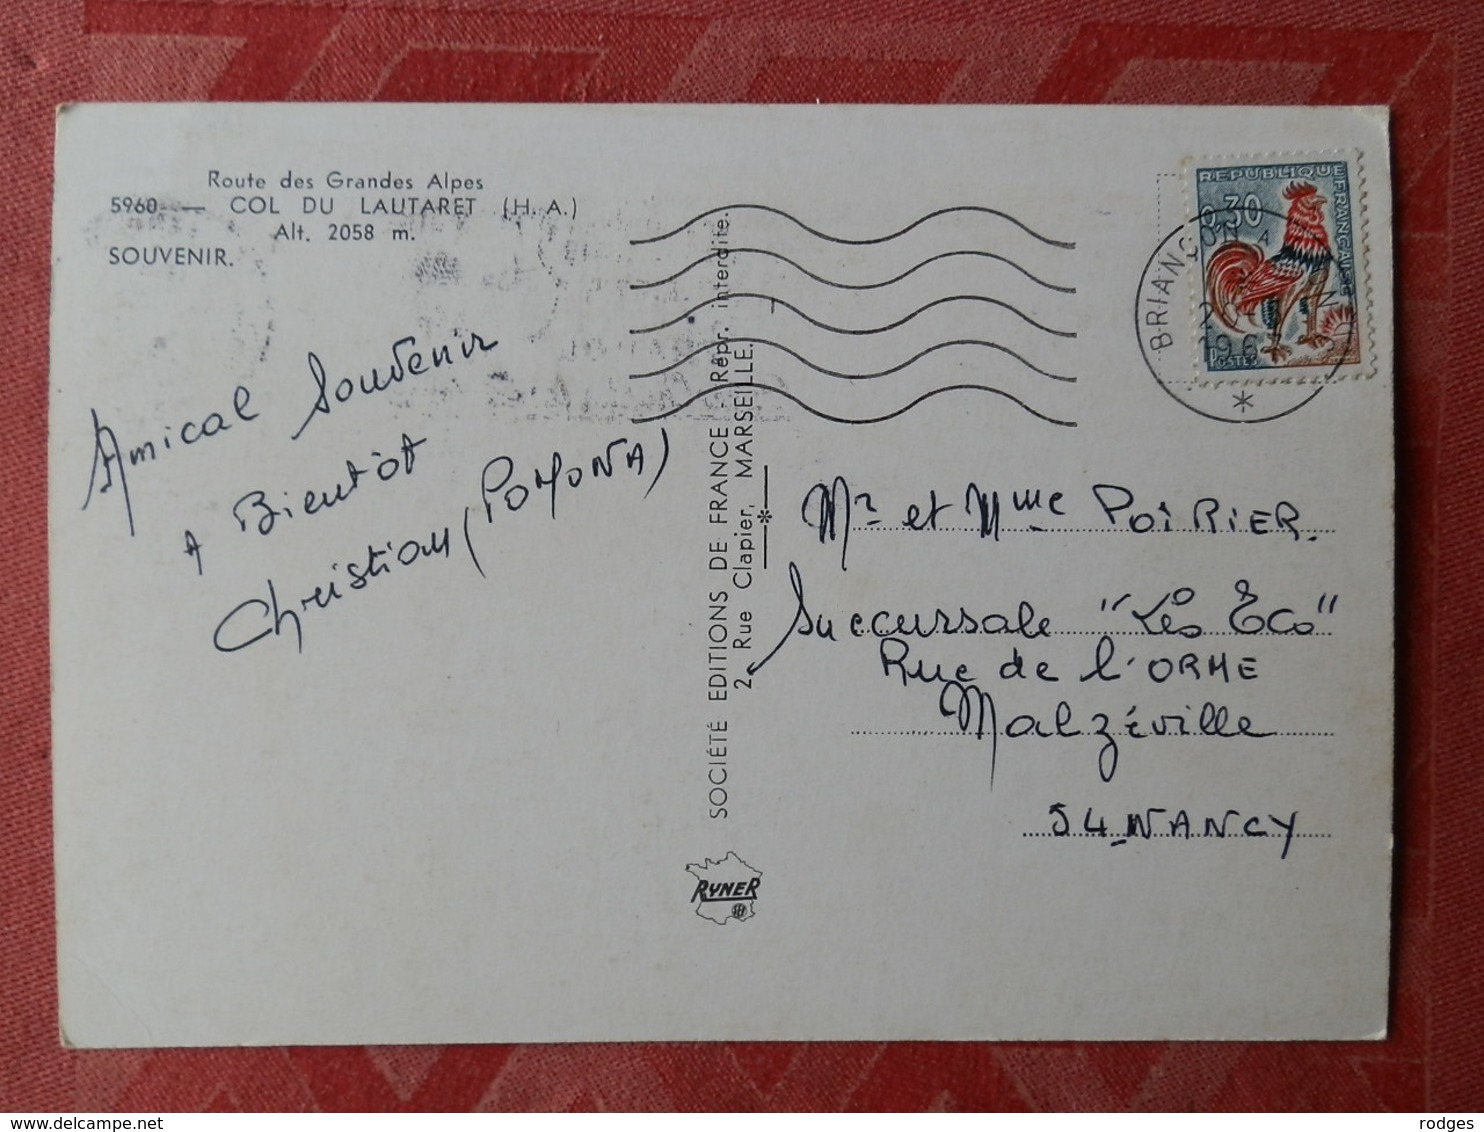 Route des Grandes Alpes
5960 — COL DU LAUTARET (H. A.)
Alt. 2058 m.
SOUVENIR.
Amical Souvenir
A Bientôt
Christian (POMONA)
SOCIÉTÉ EDITIONS DE FRANCE - Repr. interdite.
2, Rue Clapier, MARSEILLE.
RYNER
REPUBLIQUE FRANCAISE
0,30
POSTES
BRIANÇON
Mr et Mme POIRIER.
Succursale "Les Eco"
Rue de l'ORME
Malzéville
54 NANCY
delcampe.net
rodges